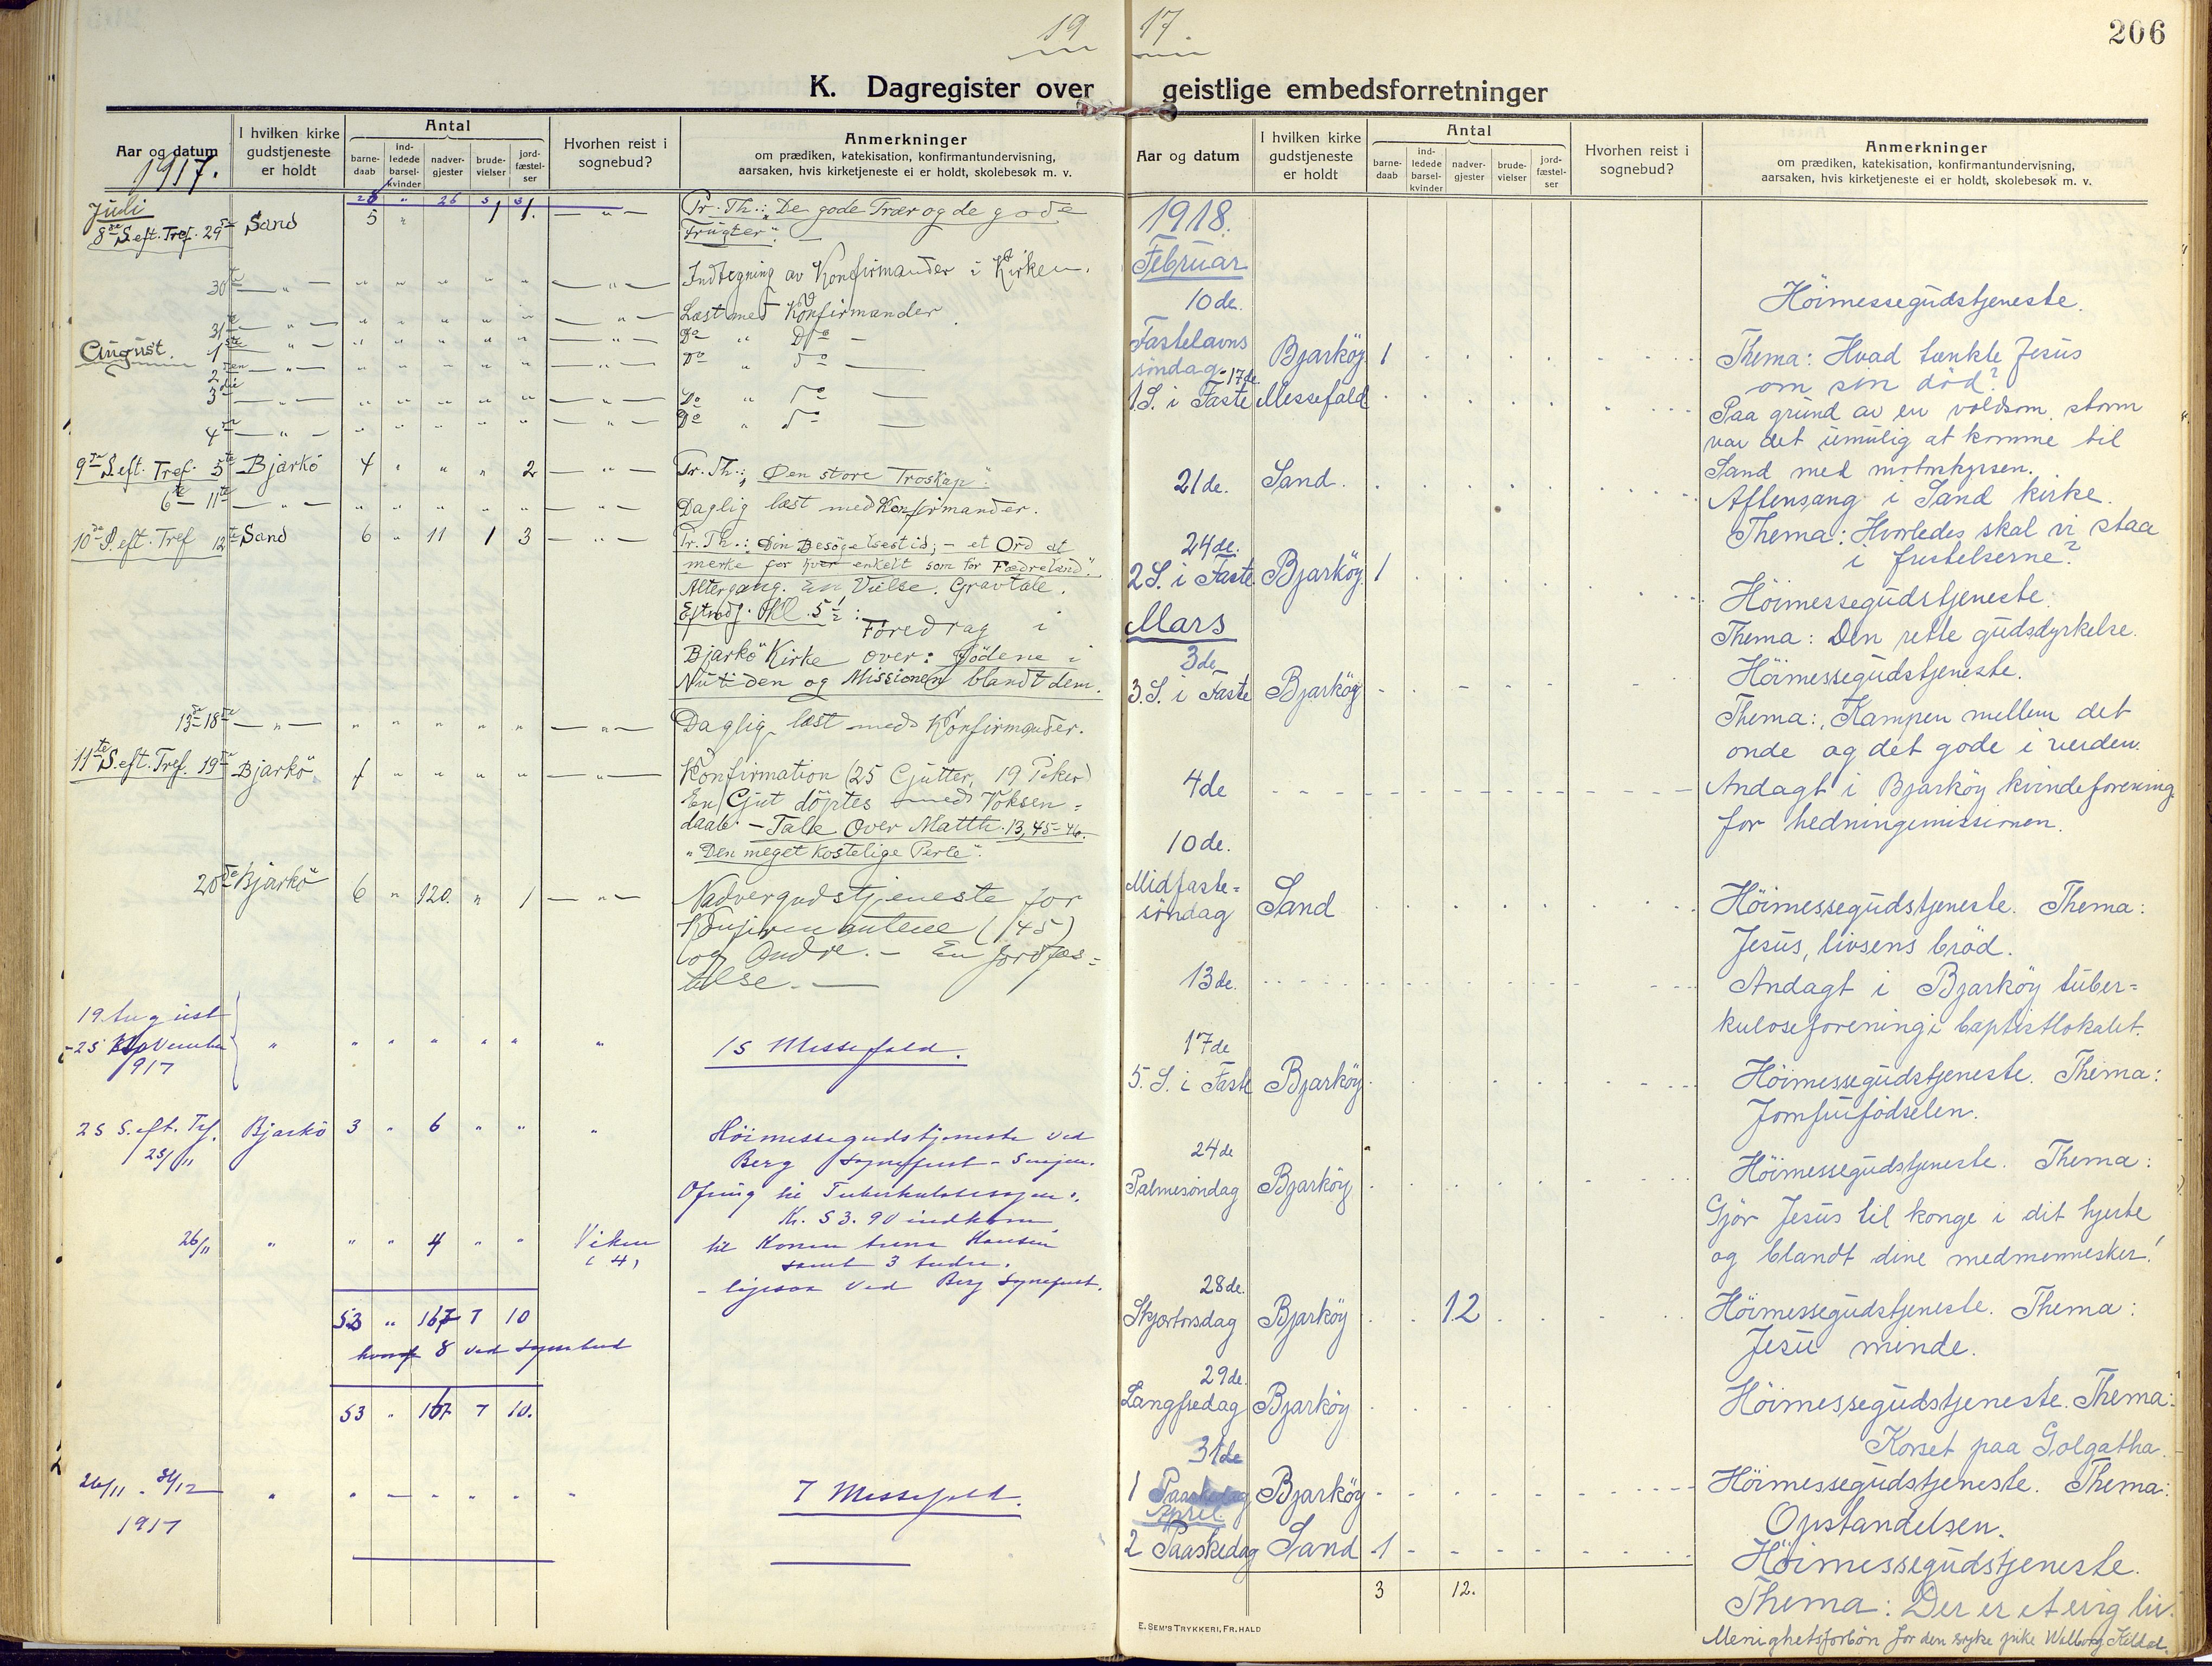 19 17.
206
K. Dagregister over geistlige embedsforretninger
Aar og datum
1917.
I hvilken kirke gudstjeneste er holdt
Antal
barnedaab
indledede barselkvinder
nadvergjester
brudevielser
jordfæstelser
Hvorhen reist i sognebud?
Anmerkninger
om prædiken, katekisation, konfirmantundervisning,
aarsaken, hvis kirketjeneste ei er holdt, skolebesøk m. v.
28 " 26 5 3
Juli
8de S. eft. Tref. 29de Sand 5 " 1 1. — " — Pr. Th.: "De gode Trær og de gode
Frugter". —
30te — " — " " " " " — " — Indtegning av Konfirmander i Kirken.
31te — " — " " " " " — " — Læst med Konfirmander.
August. 1ste — " — " " " " " — " — Do " Do —
2den — " — " " " " " — " — Do " Do —
3die — " — " " " " " — " — Do " Do —
4de — " — " " " " " — " — Do " Do —
9de S. eft. Tref. 5te Bjarkö 4 " " " 2 — " — Pr. Th.: "Den store Troskap".
6te – 11te — " — " " " " " — " — Daglig læst med Konfirmander.
10de S. eft. Tref 12te Sand 6 " 11 1 3 — " — Pr. Th.: Din Besögelsestid; – et Ord at
merke for hver enkelt som for Fædreland".
Altergang. En Vielse. Gravtale.
Eftmdg. Kl. 5 1/2: Foredrag i
Bjarkö Kirke over: Jödene i
Nutiden og Missionen blandt dem.
13de–18de — " — " " " " " — " — Daglig læst med Konfirmander.
11te S. eft. Tref. 19de Bjarkö 1 " " " " — " — Konfirmation (25 Gjutter, 19 Piker)
En Gjut döptes med Voksen=
daab. – Tale over Matth. 13,45-46.
"Den meget kostelige Perle".
20de Bjarkö 6 " 120. " 1 — " — Nadvergudstjeneste for
Konfirmantene (45)
og Andre. – En Jordfæs=
telse. —
19 August
– 25 November
1917 " " " " " " " 15 Messefald.
25 S. eft. Tref. Bjarkö 3 " 6 " " " Höimessegudstjeneste ved
25/11 Berg sogneprest – Senjen.
Ofring til Tuberkulosesagen:
Kr. 53.90 indkom
26/11 " " " 4 " " Viken til Konen Anna Hansen
(4) samt 3 Andre.
– ligesaa ved Berg sogneprest.
53 " 167 7 10
hvoraf 8 ved sognebud
53 " 167 7 10.
26/11 – 31/12
1917 " " — " " " " 7 Messefald.
Aar og datum
I hvilken kirke gudstjeneste er holdt
Antal
barnedaab
indledede barselkvinder
nadvergjester
brudevielser
jordfæstelser
Hvorhen reist i sognebud?
Anmerkninger
om prædiken, katekisation, konfirmantundervisning,
aarsaken, hvis kirketjeneste ei er holdt, skolebesøk m. v.
1918.
Februar
10de. Höimessegudstjeneste.
Fastelavns Bjarköy 1 Thema: Hvad tænkte Jesus
söndag om sin död?
17de
1 S. i Faste Messefald Paa grund av en voldsom storm
var det umulig at komme til
Sand med motorskyssen.
21de. Sand. Aftensang i Sand kirke.
Thema: Hvorledes skal vi staa
i fristelserne?
24de.
2 S. i Faste Bjarköy. 1 Höimessegudstjeneste.
Thema: Den rette gudsdyrkelse.
Mars
3de Höimessegudstjeneste.
3. S. i Faste Bjarköy Thema: Kampen mellem det
onde og det gode i verden.
4de Andagt i Bjarköy kvindeforening
for hedningemissionen.
10de.
Midfaste=
söndag Sand Höimessegudstjeneste. Thema:
Jesus, livsens bröd.
13de. Andagt i Bjarköy tuber=
kuloseforening i baptistlokalet.
17de
5. S. i Faste Bjarköy Höimessegudstjeneste. Thema:
Jomfrufödselen.
24de
Palmesöndag Bjarköy Höimessegudstjeneste. Thema:
Gjör Jesus til konge i dit hjerte
og blandt dine medmennesker!
28de.
Skjærtorsdag Bjarköy 12 Höimessegudstjeneste. Thema:
Jesu minde.
29de.
Langfredag Bjarköy Höimessegudstjeneste. Thema:
Korset paa Golgatha.
31de
1 Paaskedag Bjarköy Höimessegudstjeneste. Thema:
Opstandelsen.
April.
2 Paaskedag Sand 1 Höimessegudstjeneste.
3 12. Thema: Der er et evig liv.
Menighetsforbön for den syke pike Walborg Kildal.
E. SEM'S TRYKKERI, FR.HALD